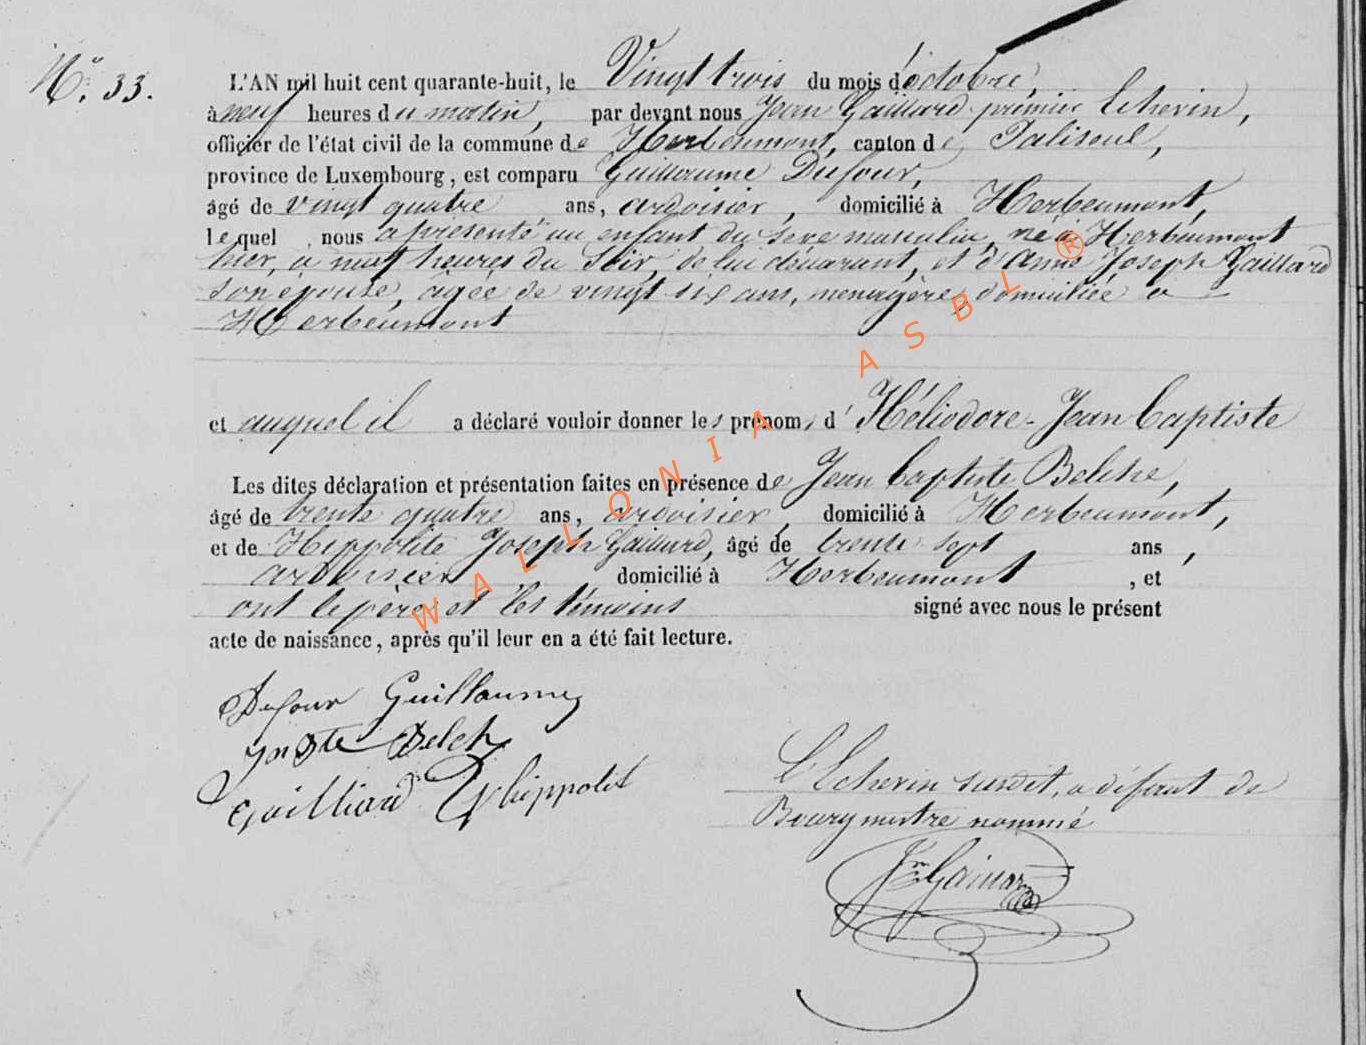 N° 33.
L'AN mil huit cent quarante-huit, le Vingt trois du mois d'octobre,
à neuf heures du matin, par devant nous Jean Gaillard premier Echevin,
officier de l'état civil de la commune de Herbeumont, canton de Paliseul,
province de Luxembourg, est comparu Guillaume Dufour,
âgé de vingt quatre ans, ardoisier, domicilié à Herbeumont,
lequel, nous a présenté un enfant du sexe masculin, né à Herbeumont
hier, à neuf heures du Soir, de lui déclarant, et d'Anne Joseph Gaillard
son épouse, agée de vingt six ans, menagère, domiciliée a
Herbeumont
et auquel il a déclaré vouloir donner les prénoms d' Héliodore-Jean Baptiste
Les dites déclaration et présentation faites en présence de Jean Baptiste Belche,
âgé de trente quatre ans, ardoisier, domicilié à Herbeumont,
et de Hippolite Joseph Gaillard, âgé de trente sept ans,
ardoisier domicilié à Herbeumont, et
ont le père et les témoins signé avec nous le présent
acte de naissance, après qu'il leur en a été fait lecture.
Dufour Guillaume
Jn Bte Belch
Gailliard hippolit
L'Echevin susdit, a défaut de
Bourgmestre nommé
Jn Gaillard
WALLONIA ASBL ®